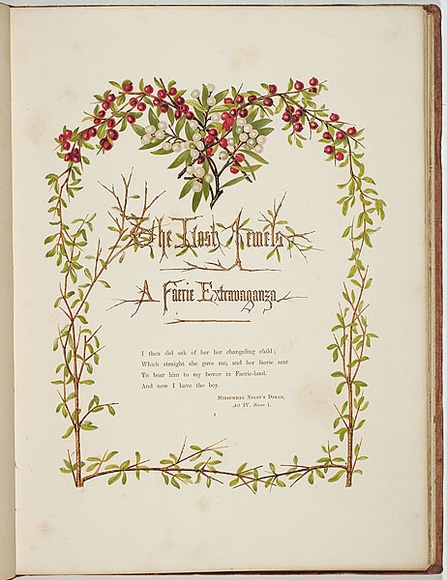 The Lost Jewels
A Faerie Extravaganza
I then did ask of her her changeling child;
Which straight she gave me, and her faerie sent
To bear him to my bower in Faerie-land.
And now I have the boy.
Midsummer Night's Dream,
Act IV. Scene 1.